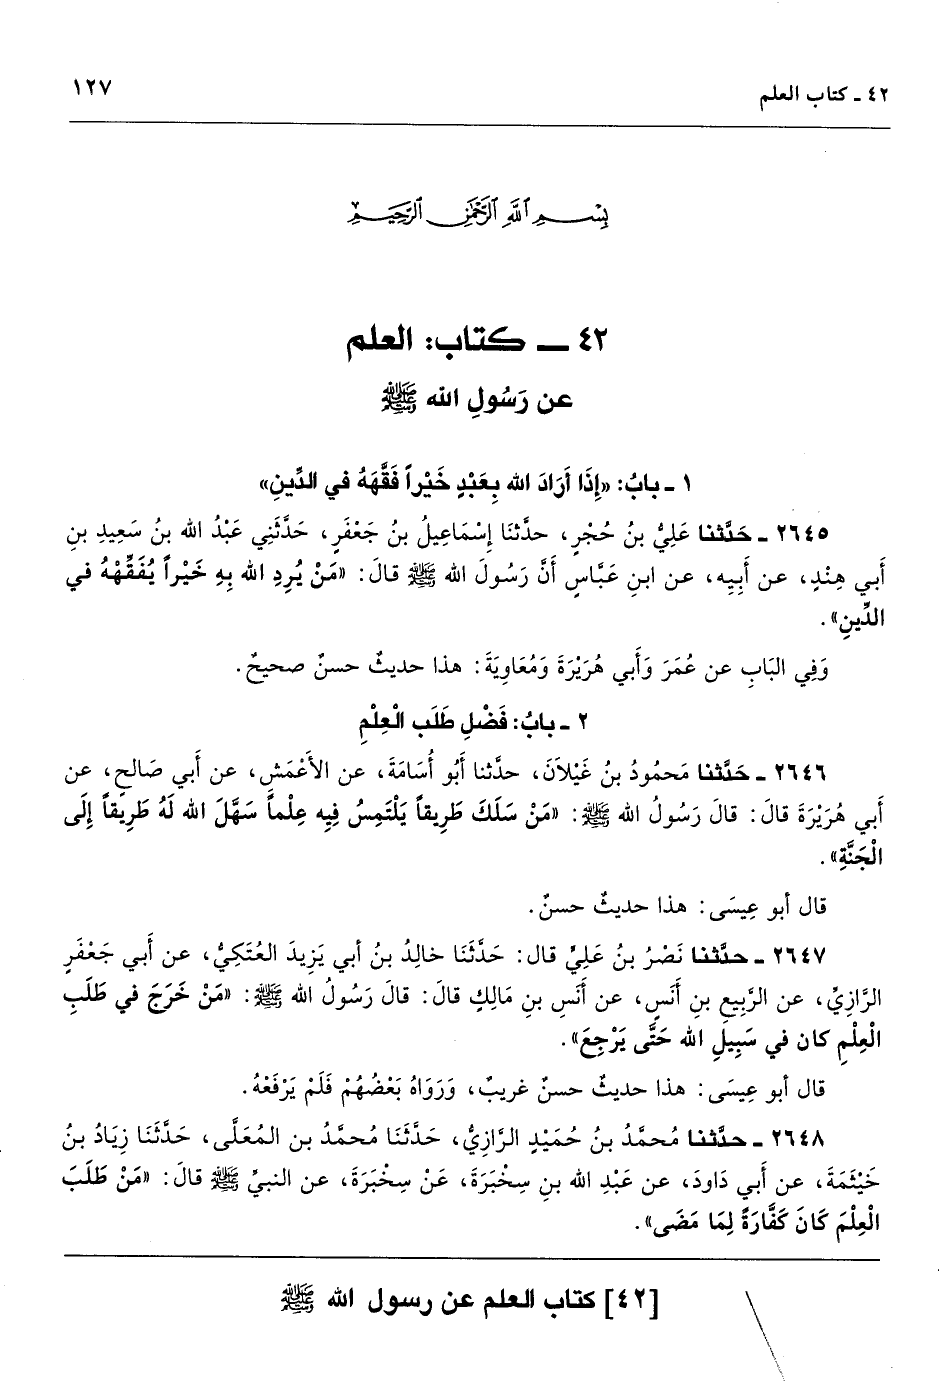 ٤٢ ـ كتاب العلم ١٢٧
بِسْمِ اللَّهِ الرَّحْمَٰنِ الرَّحِيمِ
٤٢ ــ كتاب: العلم
عن رَسُولِ الله ﷺ
١ ـ بابُ: «إِذَا أَرَادَ الله بِعَبْدٍ خَيْراً فَقَّهَهُ في الدِّينِ»
٢٦٤٥ ـ حَدَّثنا عَلِيُّ بنُ حُجْرٍ، حدَّثنا إِسْمَاعِيلُ بنُ جَعْفَرٍ، حَدَّثَنِي عَبْدُ الله بنُ سَعِيدِ بنِ
أَبي هِنْدٍ، عن أَبِيِه، عن ابنِ عَبَّاسٍ أَنَّ رَسُولَ الله ﷺ قالَ: «مَنْ يُرِدِ الله بِهِ خَيْراً يُفَقِّهْهُ في
الدِّينِ».
وَفِي البَابِ عن عُمَرَ وَأَبي هُرَيْرَةَ وَمُعَاوِيَةَ: هذا حديثٌ حسنٌ صحيحٌ.
٢ ـ بابُ: فَضْلِ طَلَبِ الْعِلْمِ
٢٦٤٦ ـ حَدَّثنا مَحمُودُ بنُ غَيْلاَنَ، حدَّثنا أَبُو أُسَامَةَ، عن الأَعْمَشِ، عن أَبي صَالحٍ، عن
أَبي هُرَيْرَةَ قالَ: قالَ رَسُولُ الله ﷺ: «مَنْ سَلَكَ طَرِيقاً يَلْتَمِسُ فِيِه عِلْماً سَهَّلَ الله لَهُ طَرِيقاً إِلَى
الْجَنَّةِ».
قال أبو عِيسَى: هذا حديثٌ حسنٌ.
٢٦٤٧ ـ حدَّثنا نَصْرُ بنُ عَلِيٍّ قال: حَدَّثَنَا خالِدُ بنُ أَبي يَزِيدَ العُتَكِيُّ، عن أَبي جَعْفَرٍ
الرَّازِيِّ، عن الرَّبِيعِ بنِ أَنَسٍ، عن أَنَسِ بنِ مَالِكٍ قالَ: قالَ رَسُولُ الله ﷺ: «مَنْ خَرَجَ في طَلَبِ
الْعِلْمِ كان في سَبِيلِ الله حَتَّى يَرْجِعَ».
قال أبو عِيسَى: هذا حديثٌ حسنٌ غريبٌ، وَرَوَاهُ بَعْضُهُمْ فَلَمْ يَرْفَعْهُ.
٢٦٤٨ ـ حدَّثنا مُحمَّدُ بنُ حُمَيْدٍ الرَّازِيُّ، حَدَّثَنَا مُحمَّدُ بن المُعَلَّى، حَدَّثَنَا زِيَادُ بنُ
خَيْثَمَةَ، عن أَبي دَاودَ، عن عَبْدِ الله بنِ سِخْبَرَةَ، عَنْ سِخْبَرَةَ، عن النبيِّ ﷺ قالَ: «مَنْ طَلَبَ
الْعِلْمَ كَانَ كَفَّارَةً لِمَا مَضَى».
[٤٢] كتاب العلم عن رسول الله ﷺ